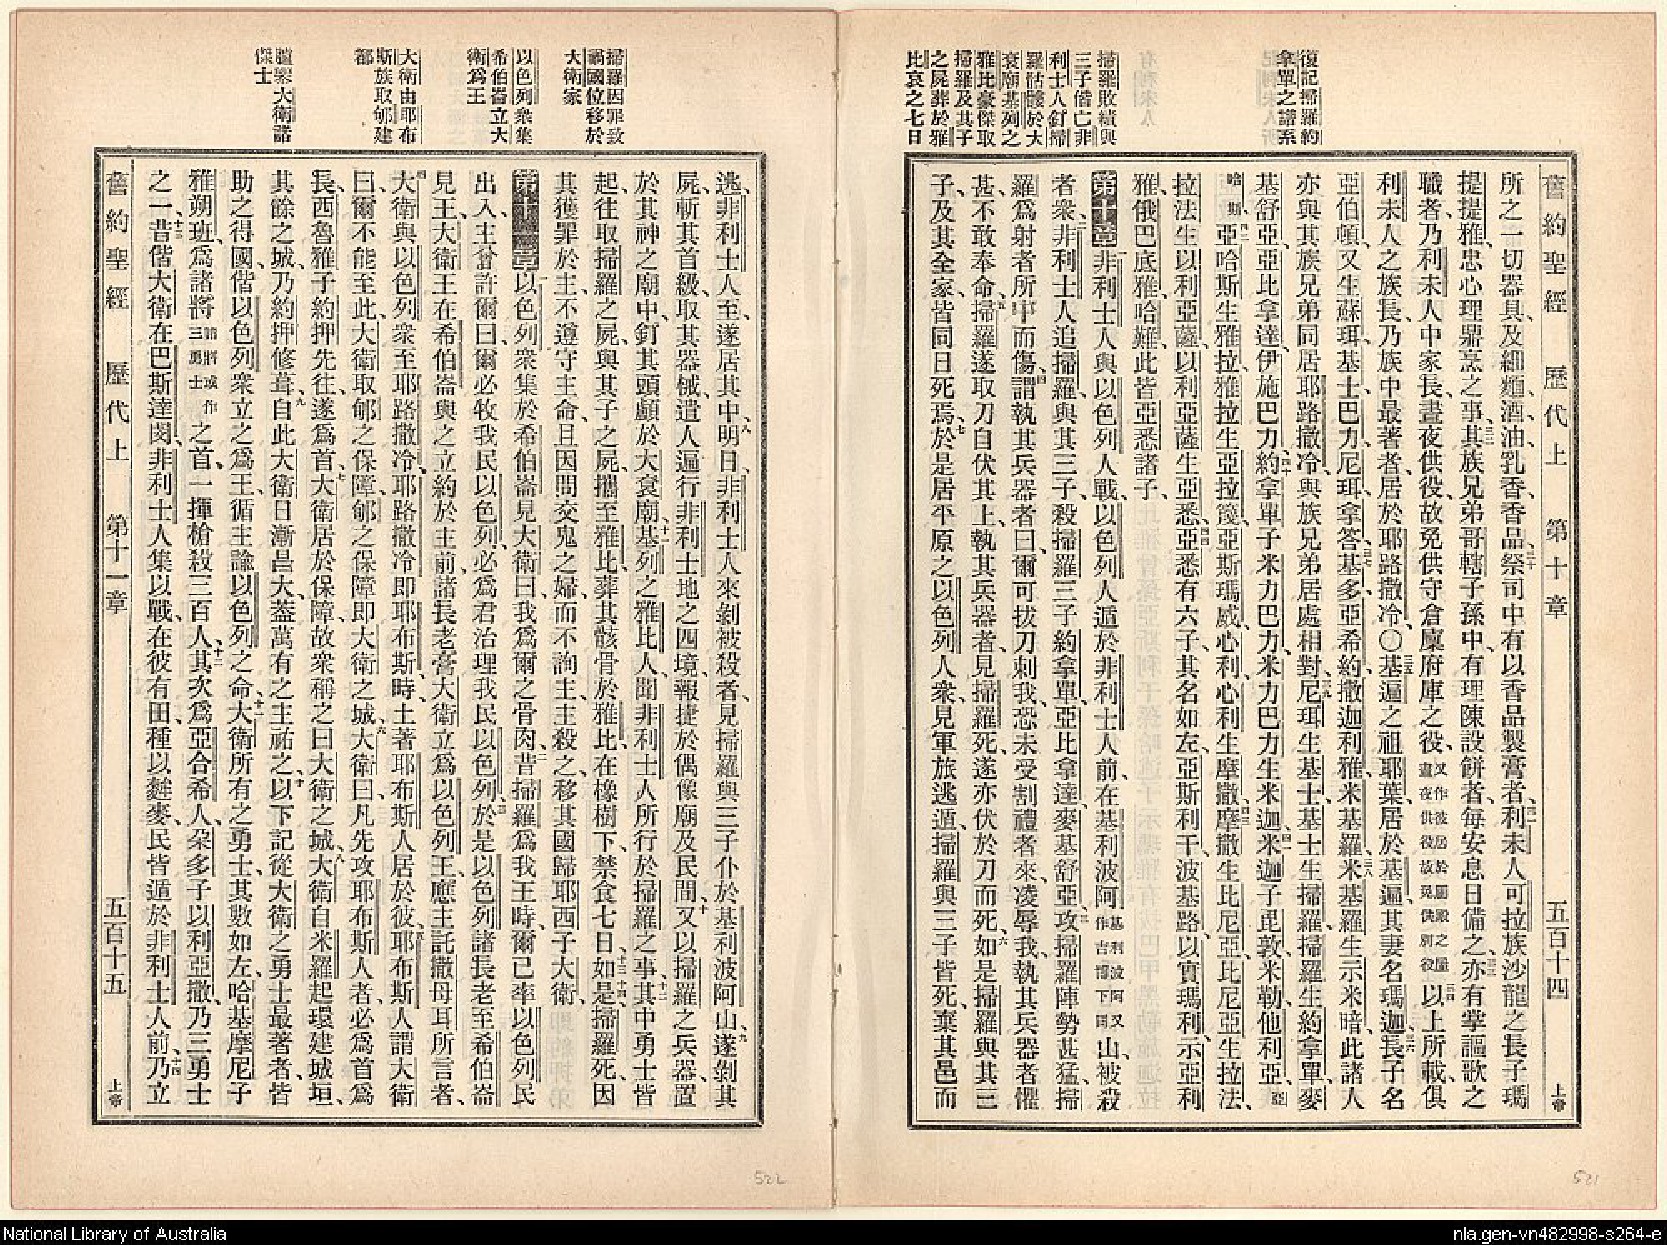 復記掃羅約
拿單之譜系
掃羅敗績與
三子偕亡非
利士人釘掃
羅骷髏於大
袞廟基列之
雅比豪傑取
掃羅及其子
之屍葬於雅
比哀之七日
舊約聖經 歷代上 第十章 五百十四 上帝
所之一切器具、及細麵、酒、油、乳香、香品、三十祭司中有以香品製膏者、三一利未人可拉族沙龍之長子瑪
提提雅、忠心理鼎烹之事、三二其族兄弟哥轄子孫中、有理陳設餅者、每安息日備之、三三亦有掌謳歌之
職者、乃利未人中家長、晝夜供役、故免供守倉廩府庫之役、又作彼居於圍殿之屋晝夜供役故免供別役三四以上所載、俱
利未人之族長、乃族中最著者、居於耶路撒冷、○三五基遍之祖耶葉、居於基遍、其妻名瑪迦、三六長子名
亞伯頓、又生蘇珥、基士、巴力、尼珥、拿答、三七基多、亞希約、撒迦利雅、米基羅、三八米基羅生示米暗、此諸人
亦與其族兄弟同居耶路撒冷、與族兄弟居處相對、三九尼珥生基士、基士生掃羅、掃羅生約拿單、麥
基舒亞、亞比拿達、伊施巴力、四十約拿單子米力巴力、米力巴力生米迦、四一米迦子毘敦、米勒、他利亞、亞
哈斯、四二亞哈斯生雅拉、雅拉生亞拉篾、亞斯瑪威、心利、心利生摩撒、四三摩撒生比尼亞、比尼亞生拉法、
拉法生以利亞薩、以利亞薩生亞悉、四四亞悉有六子、其名如左、亞斯利干、波基路、以實瑪利、示亞利
雅、俄巴底雅、哈難、此皆亞悉諸子、
第十章一非利士人與以色列人戰、以色列人遁於非利士人前、在基利波阿基利波阿又作吉博下同山被殺
者衆、二非利士人追掃羅與其三子、殺掃羅三子約拿單、亞比拿達、麥基舒亞、三攻掃羅陣勢甚猛、掃
羅爲射者所中而傷、四謂執其兵器者曰、爾可拔刀刺我、恐未受割禮者來凌辱我、執其兵器者懼
甚、不敢奉命、掃羅遂取刀自伏其上、五執其兵器者、見掃羅死、遂亦伏於刀而死、六如是掃羅與其三
子、及其全家、皆同日死焉、七於是居平原之以色列人衆、見軍旅逃遁、掃羅與三子皆死、棄其邑而
掃羅因罪致
禍國位移於
大衛家
以色列衆集
希伯崙立大
衛爲王
大衛由耶布
斯族取郇建
都
臚舉大衛諸
保士
逃、非利士人至、遂居其中、八明日、非利士人來剝被殺者、見掃羅與三子仆於基利波阿山、九遂剝其
屍、斬其首級、取其器械、遣人遍行非利士地之四境、報捷於偶像廟及民間、十又以掃羅之兵器、置
於其神之廟中、釘其頭顱於大袞廟、十一基列之雅比人、聞非利士人所行於掃羅之事、十二其中勇士皆
起、往取掃羅之屍、與其子之屍、攜至雅比、葬其骸骨於雅比、在橡樹下、禁食七日、十三如是掃羅死、因
其獲罪於主、不遵守主命、且因問交鬼之婦、十四而不詢主、主殺之、移其國歸耶西子大衛、
第十一章一以色列衆集於希伯崙見大衛曰、我爲爾之骨肉、二昔掃羅爲我王時、爾已率以色列民
出入、主曾許爾曰、爾必牧我民以色列、必爲君治理我民以色列、三於是以色列諸長老至希伯崙
見王、大衛王在希伯崙與之立約於主前、諸長老膏大衛立爲以色列王、應主託撒母耳所言者、
四大衛與以色列衆至耶路撒冷、耶路撒冷即耶布斯、時土著耶布斯人居於彼、五耶布斯人謂大衛
曰、爾不能至此、大衛取郇之保障、郇之保障即大衛之城、六大衛曰、凡先攻耶布斯人者、必爲首爲
長、西魯雅子約押先往、遂爲首、七大衛居於保障、故衆稱之曰大衛之城、八大衛自米羅起、環建城垣、
其餘之城、乃約押修葺、九自此大衛日漸昌大、蓋萬有之主祐之、十以下記從大衛之勇士最著者、皆
助之得國、偕以色列衆立之爲王、循主諭以色列之命、十一大衛所有之勇士、其數如左、哈基摩尼子
雅朔班、爲諸將諸將或作三勇士之首、一揮槍殺三百人、十二其次爲亞合希人朵多子以利亞撒、乃三勇士
之一、十三昔偕大衛在巴斯達閔、非利士人集以戰、在彼有田、種以麰麥、民皆遁於非利士人前、十四乃立
舊約聖經 歷代上 第十一章 五百十五 上帝
522
521
National Library of Australia
nla.gen-vn482998-s264-e